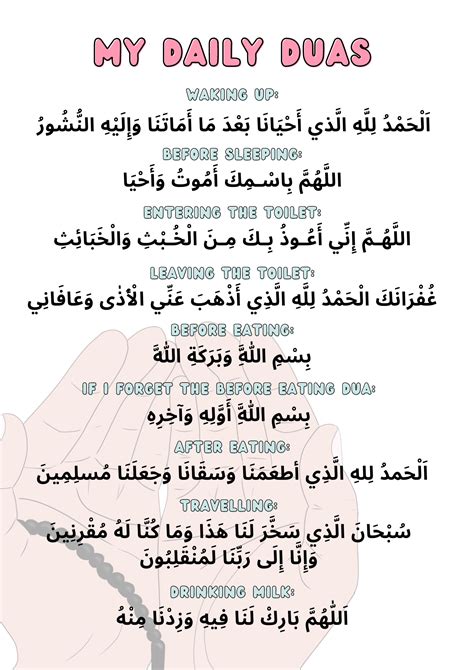 MY DAILY DUAS
WAKING UP:
اَلْحَمْدُ لِلَّهِ الَّذي أَحْيَانَا بَعْدَ مَا أَمَاتَنَا وَإِلَيْهِ النُّشُورُ
BEFORE SLEEPING:
اللَّهُمَّ بِاسْـمِكَ أَمُوتُ وَأَحْيَا
ENTERING THE TOILET:
اللَّهُـمَّ إِنِّي أَعُـوذُ بِـكَ مِـنَ الْخُـبْثِ وَالْخَبَائِثِ
LEAVING THE TOILET:
غُفْرَانَكَ الْحَمْدُ لِلَّهِ الَّذِي أَذْهَبَ عَنِّي الْأذٰى وَعَافَانِي
BEFORE EATING:
بِسْمِ اللَّهِ وَبَرَكَةِ اللَّهِ
IF I FORGET THE BEFORE EATING DUA:
بِسْمِ اللَّهِ أَوَّلِهِ وَآخِرِهِ
AFTER EATING:
اَلْحَمدُ لِلهِ الَّذِي أطعَمَنَا وَسَقَانَا وَجَعَلَنَا مُسلِمِينَ
TRAVELLING:
سُبْحَانَ الَّذِي سَخَّرَ لَنَا هَذَا وَمَا كُنَّا لَهُ مُقْرِنِينَ
وَإِنَّا إِلَى رَبِّنَا لَمُنْقَلِبُونَ
DRINKING MILK:
اَللَّهُمَّ بَارِكْ لَنَا فِيهِ وَزِدْنَا مِنْهُ